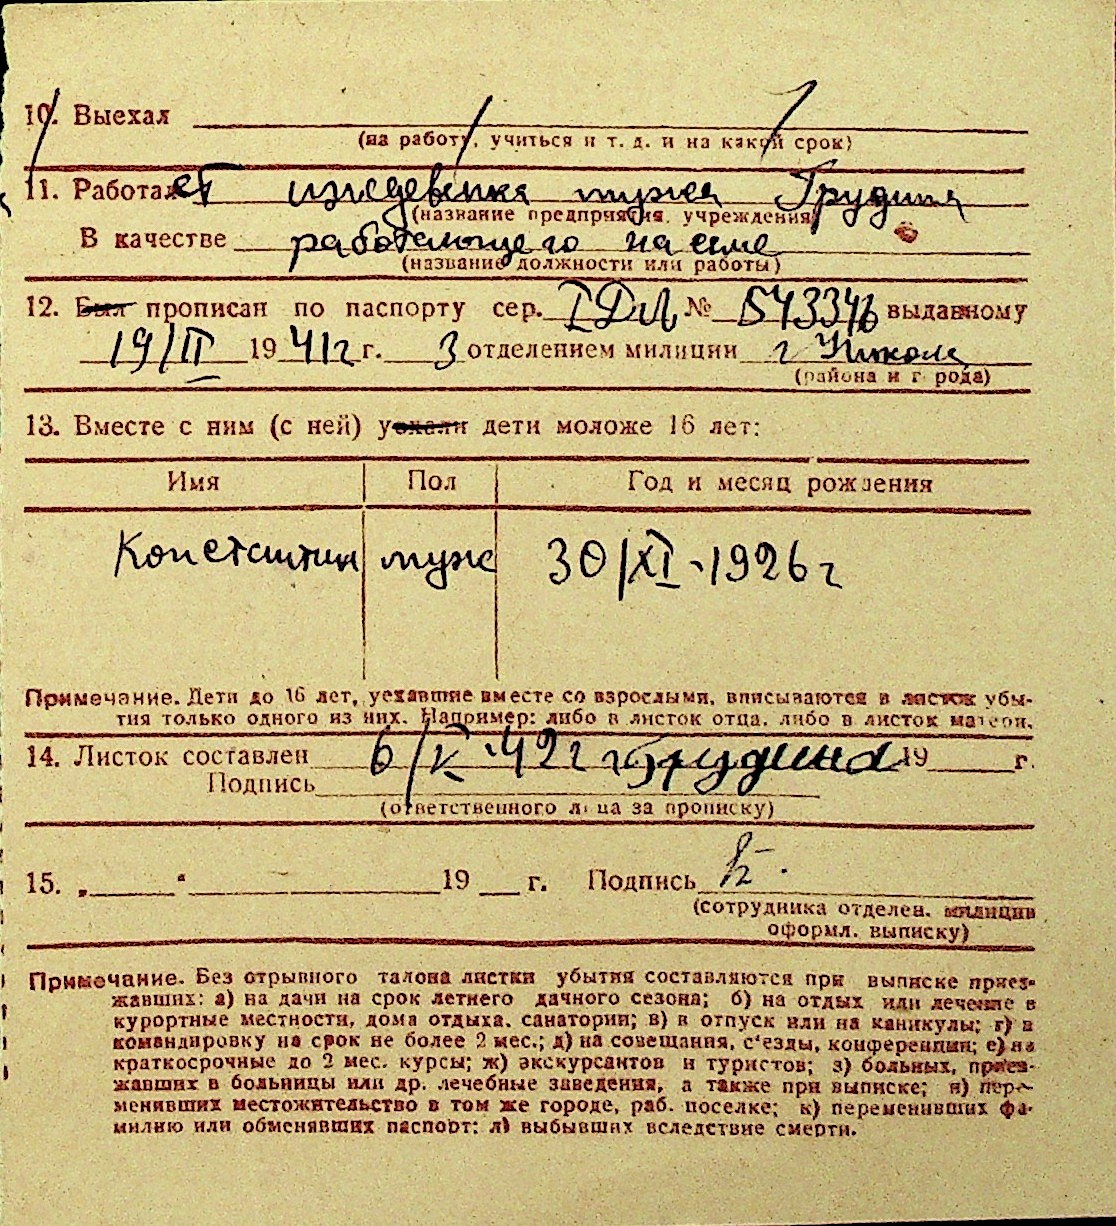 10. Выехал
(на работу, учиться и т. д. и на какой срок)
11. Работает иждевенка мужа Грудина
(название предприятия, учреждения)
В качестве работающего на
(название должности или работы)
12. Был прописан по паспорту сер. № 543346 выданному
19/II 1941г г. 3 отделением милиции г
(района и города)
13. Вместе с ним (с ней) уехали дети моложе 16 лет:
Имя Пол Год и месяц рождения
Константин муж 30/XI-1926г
Примечание. Дети до 16 лет, уехавшие вместе со взрослыми, вписываются в листок убы-
тия только одного из них. Например: либо в листок отца, либо в листок матери.
14. Листок составлен 42г Грудина 19 г.
Подпись
(ответственного лица за прописку)
15. „ “ 19 г. Подпись
(сотрудника отделен. милиции
оформл. выписку)
Примечание. Без отрывного талона листки убытия составляются при выписке приез-
жавших: а) на дачи на срок летнего дачного сезона; б) на отдых или лечение в
курортные местности, дома отдыха, санатории; в) в отпуск или на каникулы; г) в
командировку на срок не более 2 мес.; д) на совещания, с'езды, конференции; е) на
краткосрочные до 2 мес. курсы; ж) экскурсантов и туристов; з) больных, приез-
жавших в больницы или др. лечебные заведения, а также при выписке; и) пере-
менивших местожительство в том же городе, раб. поселке; к) переменивших фа-
милию или обменявших паспорт; л) выбывших вследствие смерти.